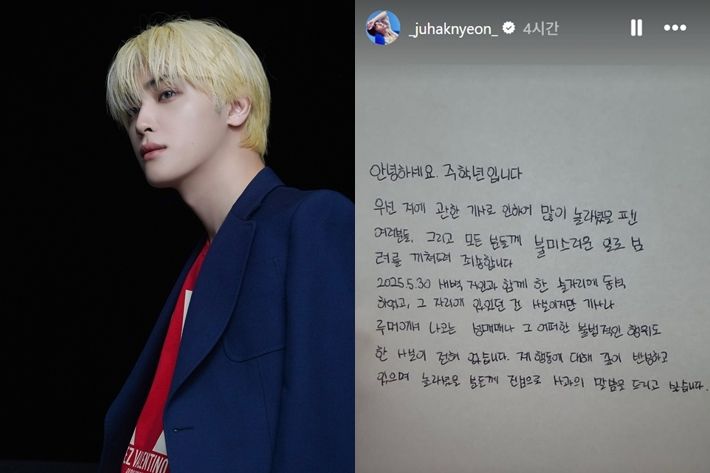 EZ VALENTINO
_juhaknyeon_ 4시간
안녕하세요. 주학년입니다
우선 저에 관한 기사로 인하여 많이 놀라셨을 팬
여러분들, 그리고 모든 분들께 불미스러운 일로 심
려를 끼쳐드려 죄송합니다
2025.5.30 새벽 지인과 함께 한 술자리에 동석
하였고, 그 자리에 있었던 건 사실이지만 기사나
루머에서 나오는 성매매나 그 어떠한 불법적인 행위도
한 사실이 전혀 없습니다. 제 행동에 대해 깊이 반성하고
있으며 놀라셨을 분들께 진심으로 사과의 말씀을 드리고 싶습니다.